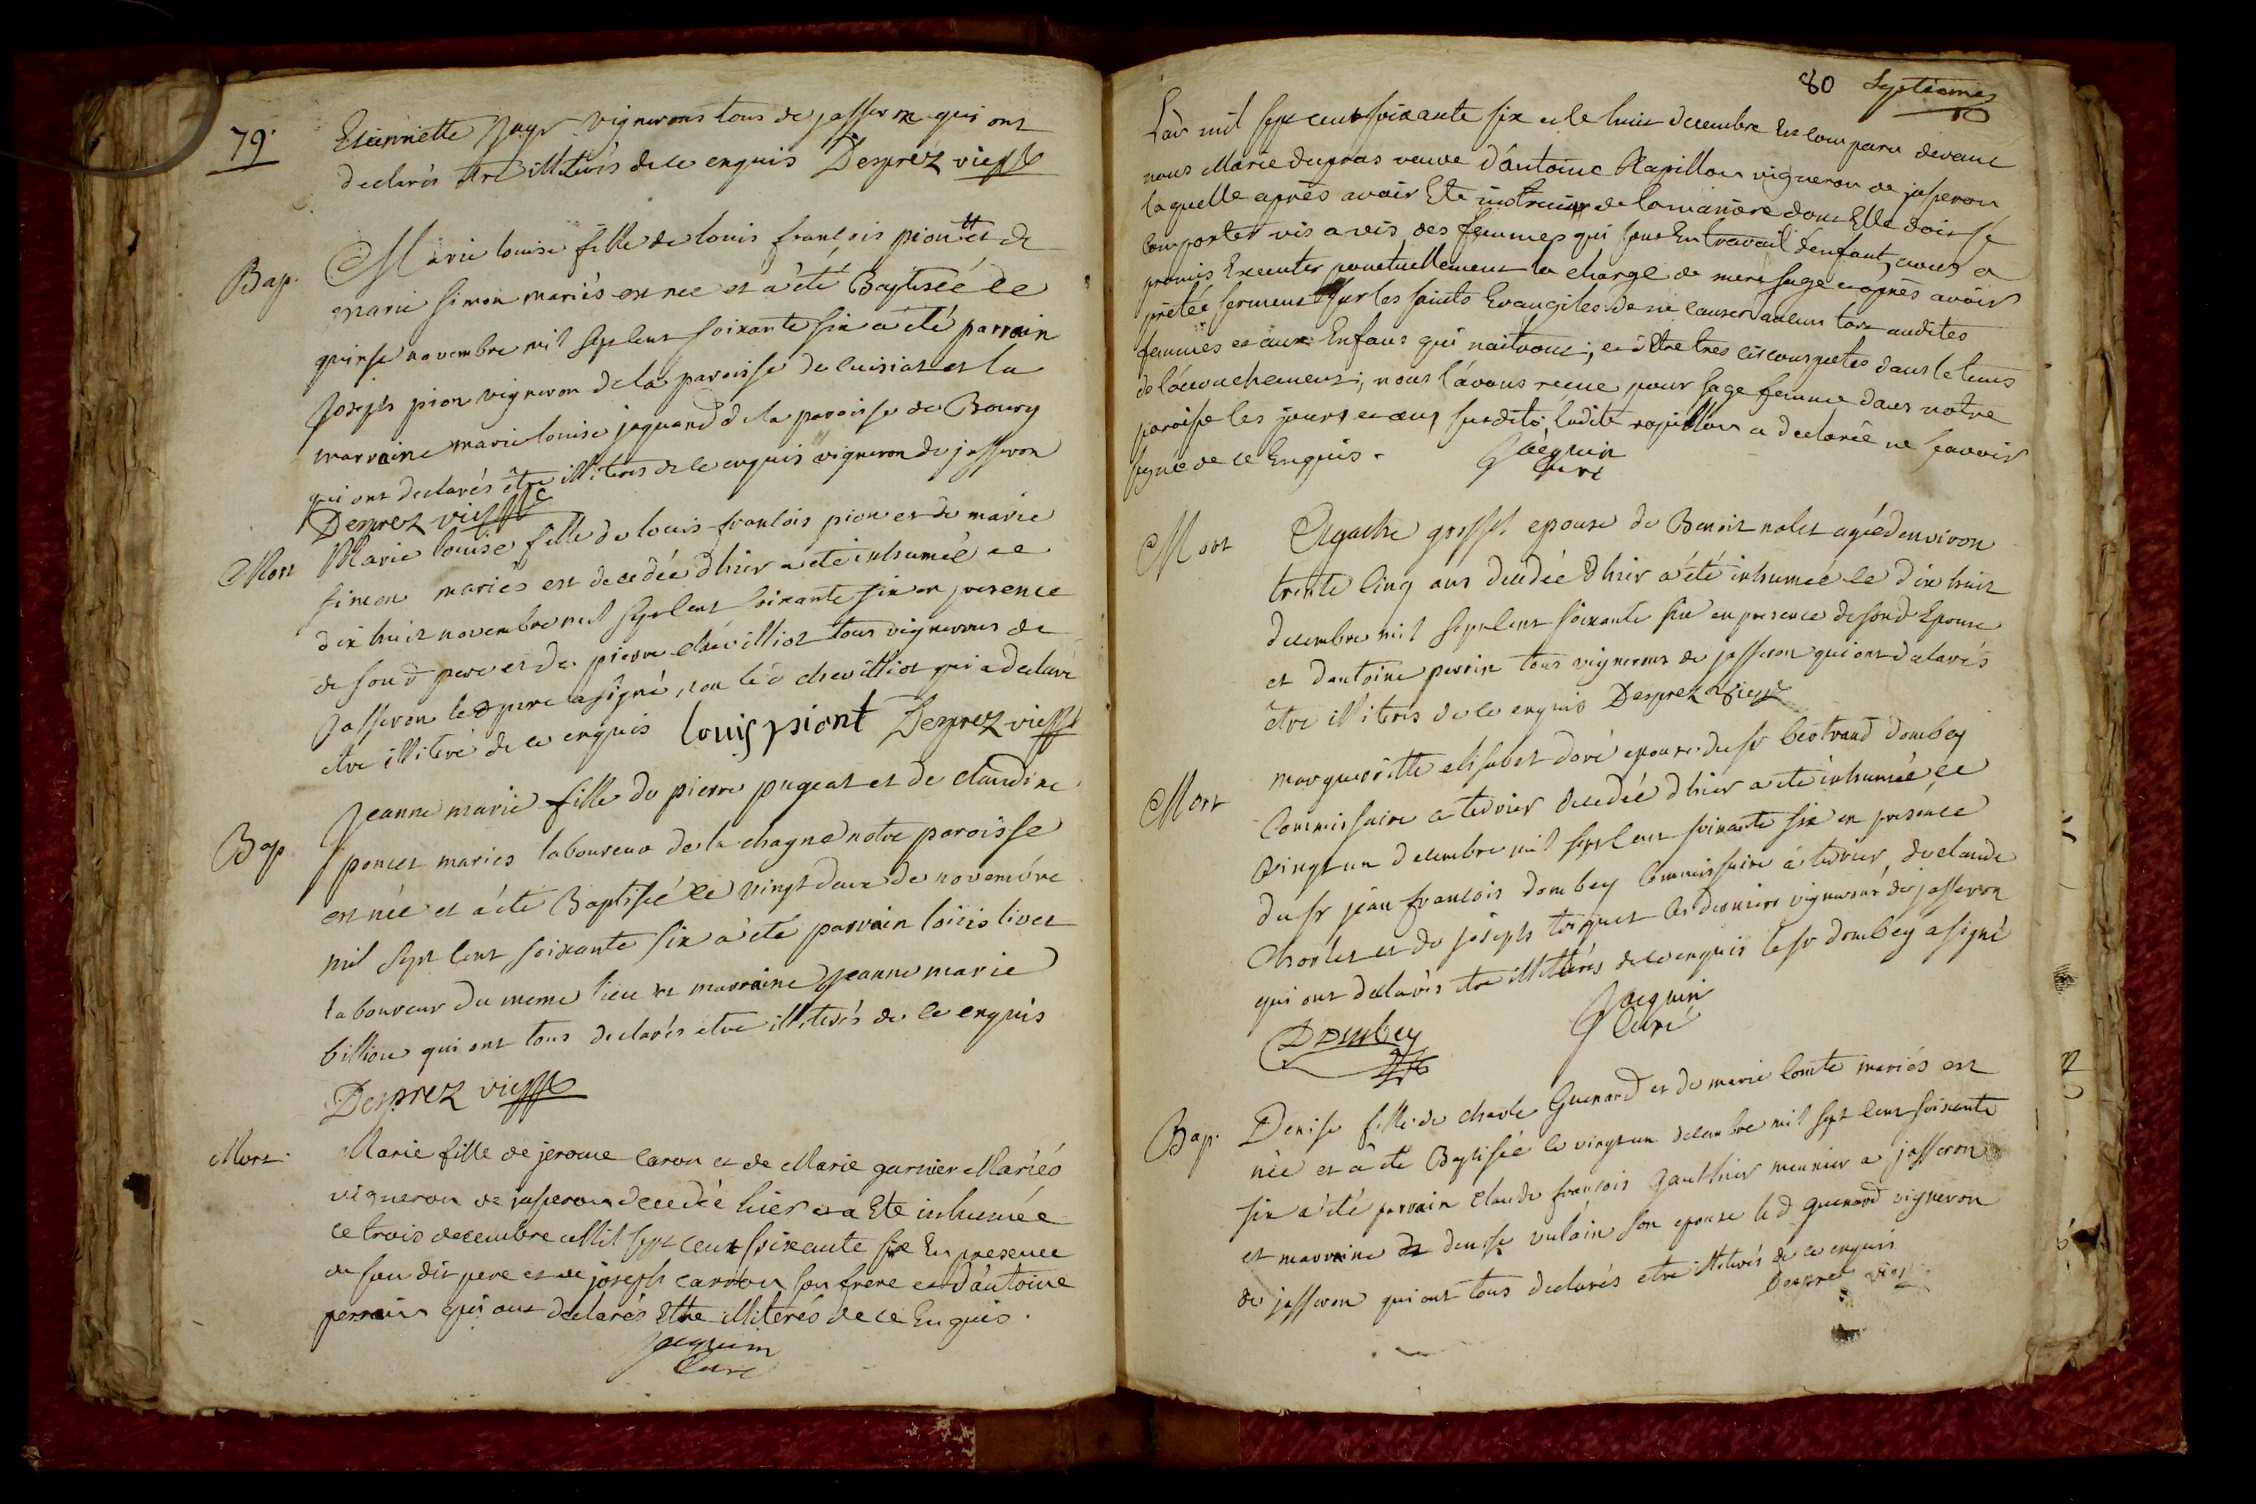 79.
Etiennette Jayr vignerons tous de jasseron qui ont
declarés être illiterés de ce enquis Desprez vic
Bap. Marie louise fille de louis francois piont et de
marie simon mariés est née et a été Baptisée le
quinse novembre mil sept cent soixante six a été parrain
Joseph pion vigneron de la paroisse de cuisiat et la
marraine marie louise jaquand de la paroisse de Bourg
qui ont declarés être illiterés de ce enquis vigneron de jasseron
Desprez vic
Mort Marie louise fille de louis francois pion et de marie
simon mariés est decedée d'hier a été inhumée ce
dix huit novembre mil sept cent soixante six en presence
de son d pere et de pierre chevilliot tous vignerons de
Jasseron le d pere a signé, non le d chevilliot qui a declaré
etre illiteré de ce enquis louis piont Desprez vic
Bap Jeanne marie fille de pierre pugeat et de claudine
poncet mariés laboureur de la chagne notre paroisse
est née et a été Baptisée le vingt deux de novembre
mil sept cent soixante six a été parrain loüis livet
laboureur du meme lieu et marraine Jeanne marie
billion qui ont tous declarés etre illiterés de ce enquis
Desprez vic
Mort. Marie fille de jerome caron et de Marie garnier Mariés
vigneron de jasseron decedée hier et a Eté inhumée
ce trois decembre Mil sept cent soixante six En presence
de son dit pere et de joseph carron son frere et d'antoine
perrain qui ont declarés Etre illiterés de ce Enquis.
Jacquin
Curé
80 Septieme
L'an mil sept cent soixante six et le huit decembre Est comparu devant
nous Marie dupras veuve d'antoine Rapillon vigneron de jasseron
laquelle après avoir Eté instruite de la maniere dont Elle doit se
comporter vis a vis des femmes qui sont En travail d'enfant, nous a
promis Executer ponctuellement la charge de mere sage et après avoir
prêté serment sur les saints Evangiles de ne causer aucun tort audites
femmes et aux Enfans qui naitront; et d'Etre tres circonspectes dans le tems
de l'acouchement; nous l'avons reçue pour sage femme dans notre
paroisse les jours et an susdits, ladite rapillon a declarée ne scavoir
signé de ce Enquis.
Jacquin
Curé
Mort Agathe epouse de Benoit nalet agée d'environ
trente cinq ans decedée d'hier a été inhumée le dix huit
decembre mil sept cent soixante six en presence de son d Epoux
et d'antoine perrin tous vignerons de jasseron qui ont declarés
être illiterés de ce enquis Desprez vic
Mort margueritte elisabet doré epouse du sr bertrand dombey
Commissaire a terrier decedée d'hier a été inhumée le
vingt un decembre mil sept cent soixante six en presence
du sr jean francois dombey Commissaire á terrier, de claude
Charlet et de joseph torquet les derniers vignerons de jasseron
qui ont declarés etre illiterés de ce enquis le sr dombey a signé
Dombey Jacquin
Curé
Bap. Denise fille de charle Guenard et de marie comte mariés est
née et a été Baptisée le vingt un decembre mil sept cent soixante
six a été parrain claude francois Gauthier meunier a jasseron
et marraine denise vulain son epouse le d guenard vigneron
de jasseron qui ont tous declarés etre illiterés de ce enquis
Desprez vic